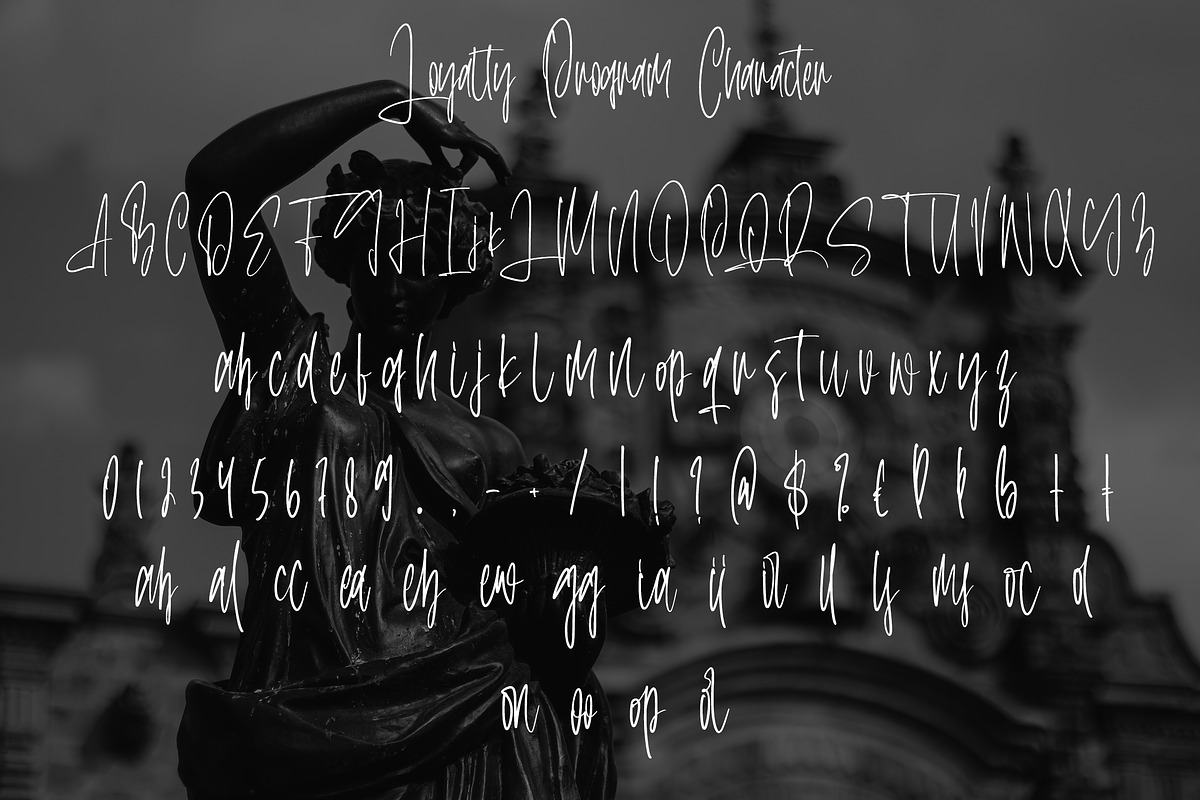 Loyalty Program Character
ABCDEFGHIJKLMNOPQRSTUVWXYZ
abcdefghijklmnopqrstuvwxyz
0123456789.,-+/|!?@$%€
ab al cc ea eb ew gg ia ii il ll ly my oc ol
on oo op ol